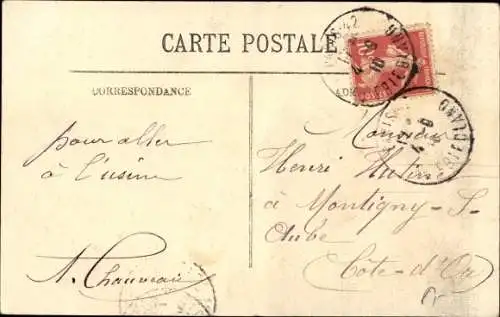 CARTE POSTALE
CORRESPONDANCE
pour aller
à l'usine
A. Chauveau
Monsieur
Henri Hutin
à Montigny-S-
Aube
Côte-d'Or